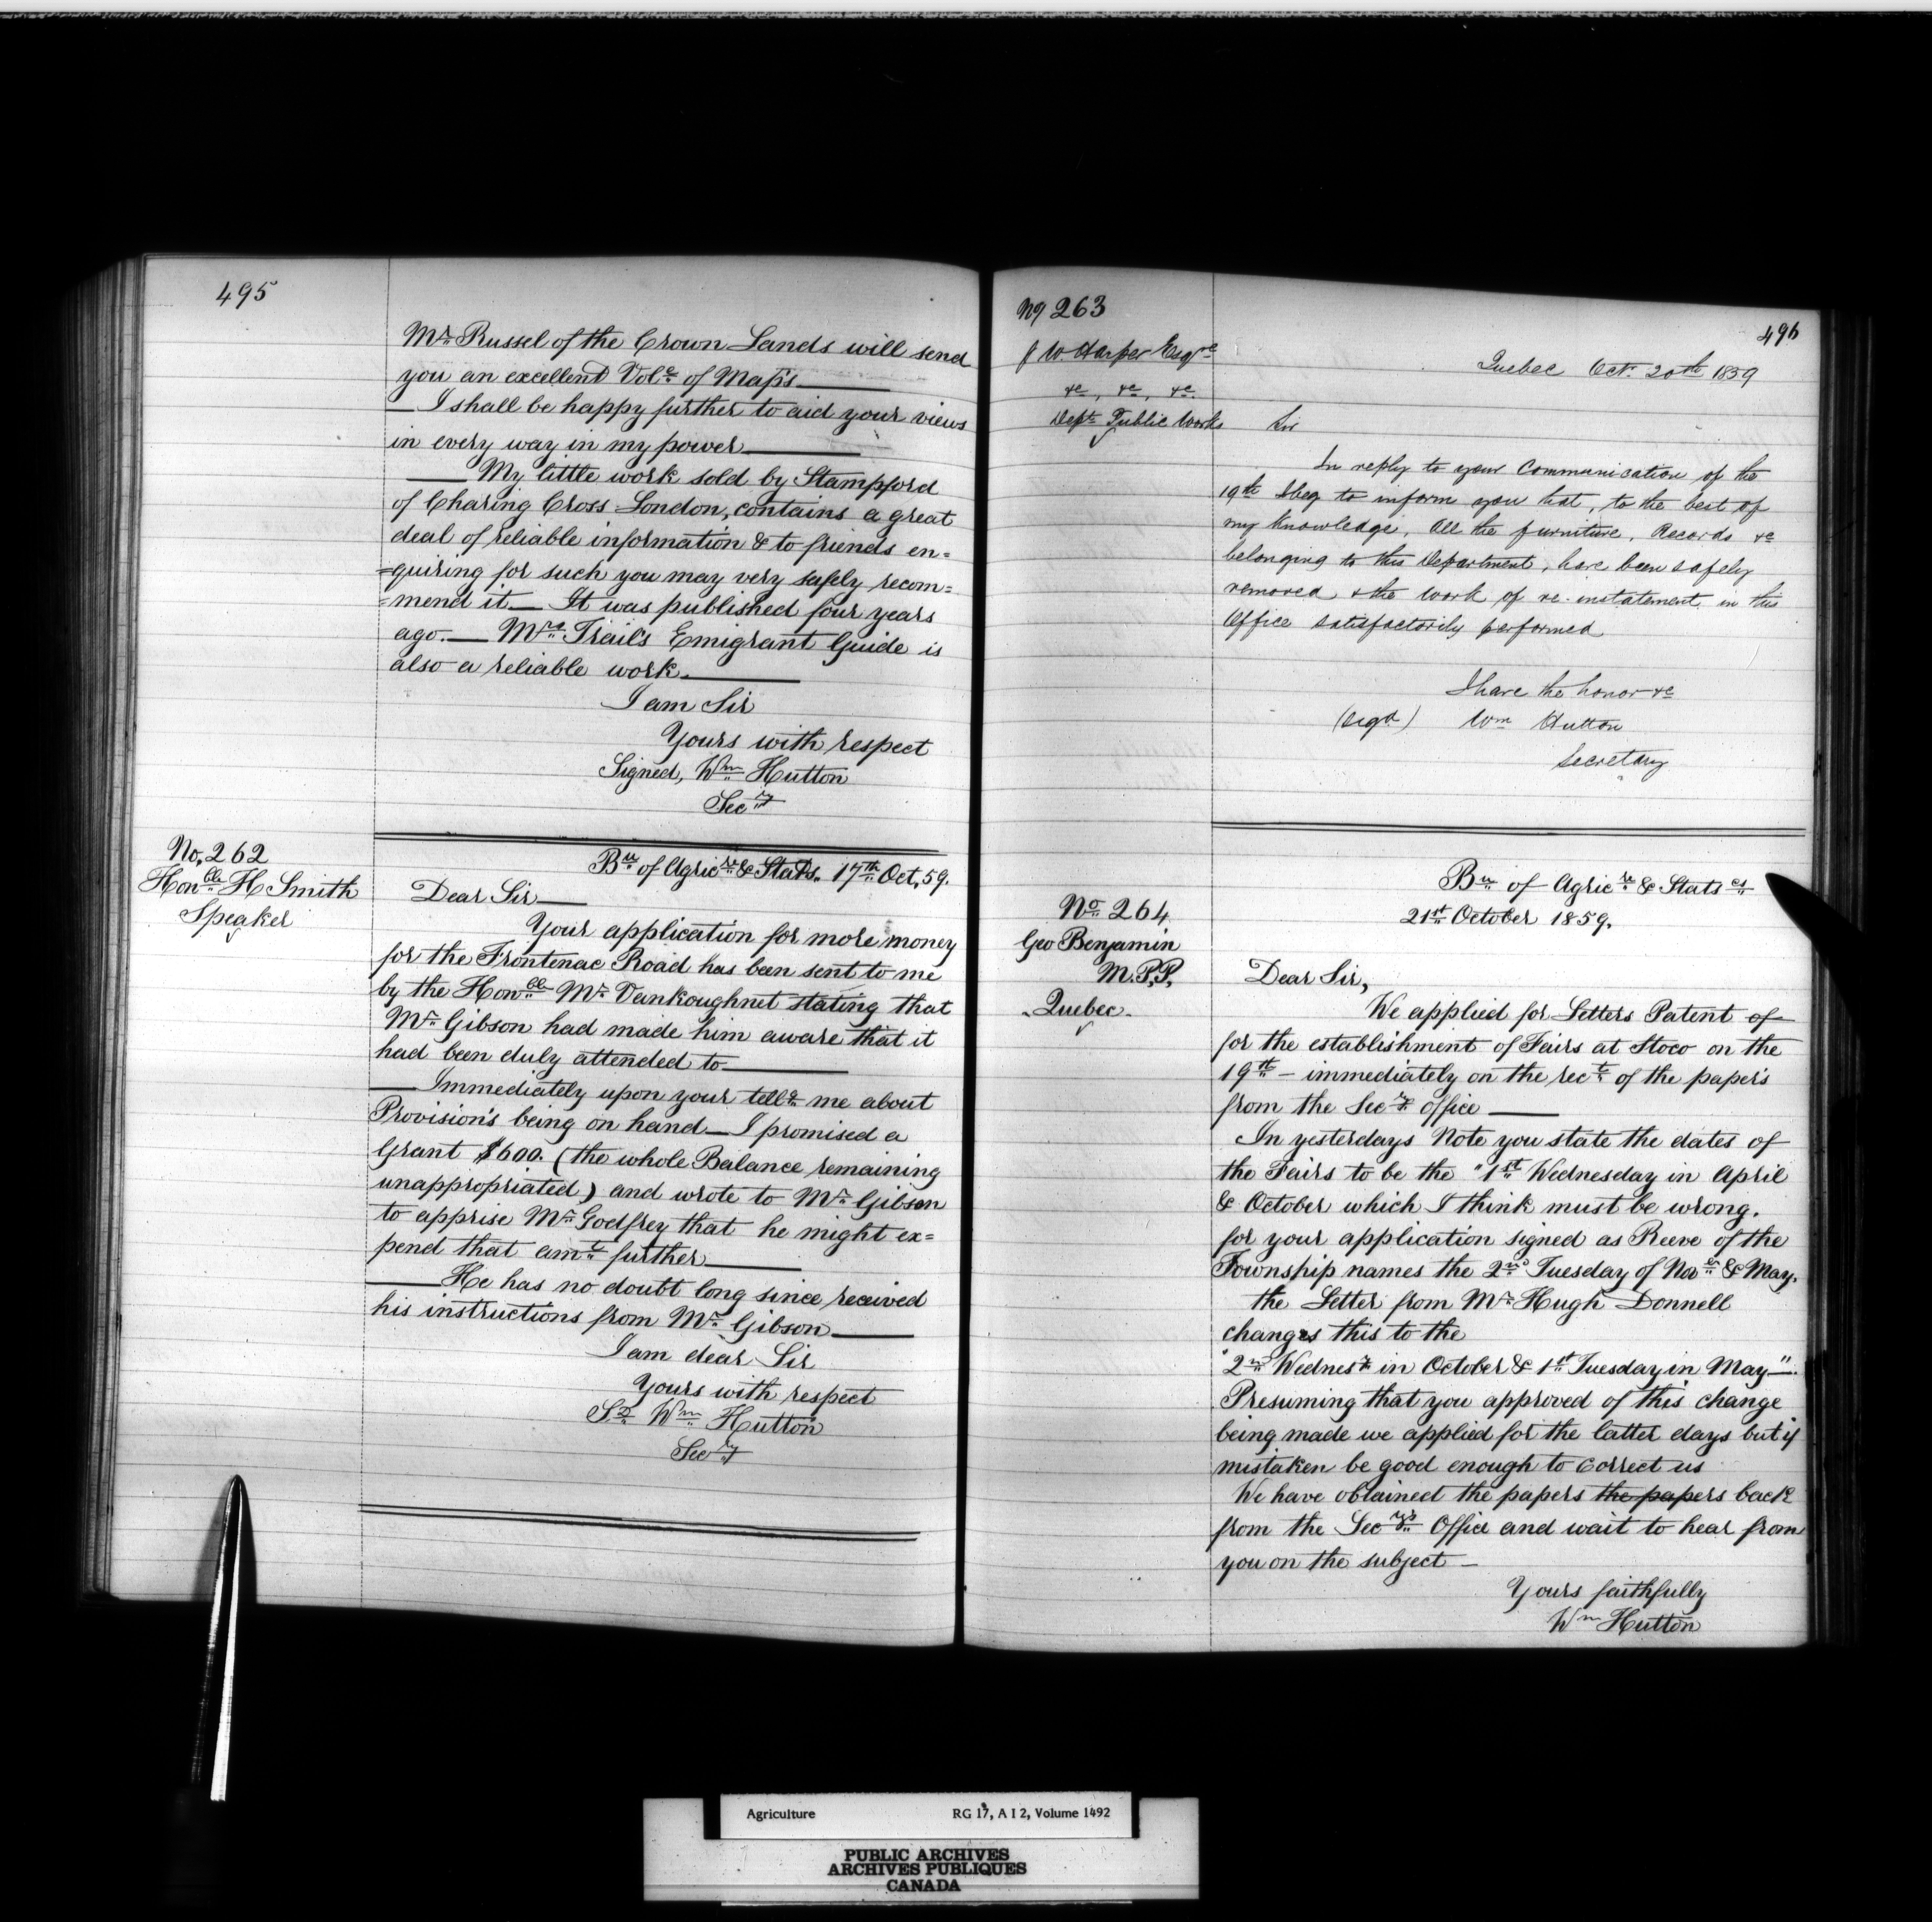 495
Mr. Russel of the Crown Lands will send
you an excellent Vole. of Maps
I shall be happy further to aid your views
in every way in my power
My little work sold by Stampford
of Charing Cross London, contains a great
deal of reliable information & to friends en=
=quiring for such you may very safely recom=
=mend it. It was published four years
ago. Mrs. Trail's Emigrant Guide is
also a reliable work.
I am Sir
Yours with respect
Signed, Wm Hutton
Secry
No. 262
Honble H Smith
Speaker
Bu of Agricre & Stats. 17th Oct, 59.
Dear Sir
Your application for more money
for the Frontenac Road has been sent to me
by the Honble Mr. Vankoughnet stating that
Mr. Gibson had made him aware that it
had been duly attended to
Immediately upon your tellg me about
Provision's being on hand I promised a
Grant $600. (the whole Balance remaining
unappropriated) and wrote to Mr. Gibson
to apprise Mr. Godfrey that he might ex=
pend that amt further
He has no doubt long since received
his instructions from Mr. Gibson
I am dear Sir
Yours with respect
Sd Wm Hutton
Secry
No 263
496
J W. Harper Esqre
&c, &c, &c.
Dept Public Works
Quebec Oct. 20th 1859
Sir
In reply to your Communication of the
19th I beg to inform you that, to the best of
my knowledge, All the furniture, Records &c
belonging to this Department, have been safely
removed & the work of re-instatement in this
Office satisfactorily performed
I have the honor &c
(sigd) Wm Hutton
Secretary
No 264
Geo Benjamin
M.P.P.
Quebec.
Bu of Agricre & Statscs
21st October 1859.
Dear Sir,
We applied for Letters Patent of
for the establishment of Fairs at Stoco on the
19th - immediately on the rect of the papers
from the Secry office
In yesterdays Note you state the dates of
the Fairs to be the "1st Wednesday in April
& October which I think must be wrong.
for your application signed as Reeve of the
Township names the 2nd Tuesday of Nover & May.
the Letter from Mr. Hugh Donnell
changes this to the
"2nd Wednesy in October & 1st Tuesday in May".
Presuming that you approved of this change
being made we applied for the latter days but if
mistaken be good enough to correct us
We have obtained the papers the papers back
from the Secrys Office and wait to hear from
you on the subject -
Yours faithfully
Wm Hutton
Agriculture RG 17, A I 2, Volume 1492
PUBLIC ARCHIVES
ARCHIVES PUBLIQUES
CANADA